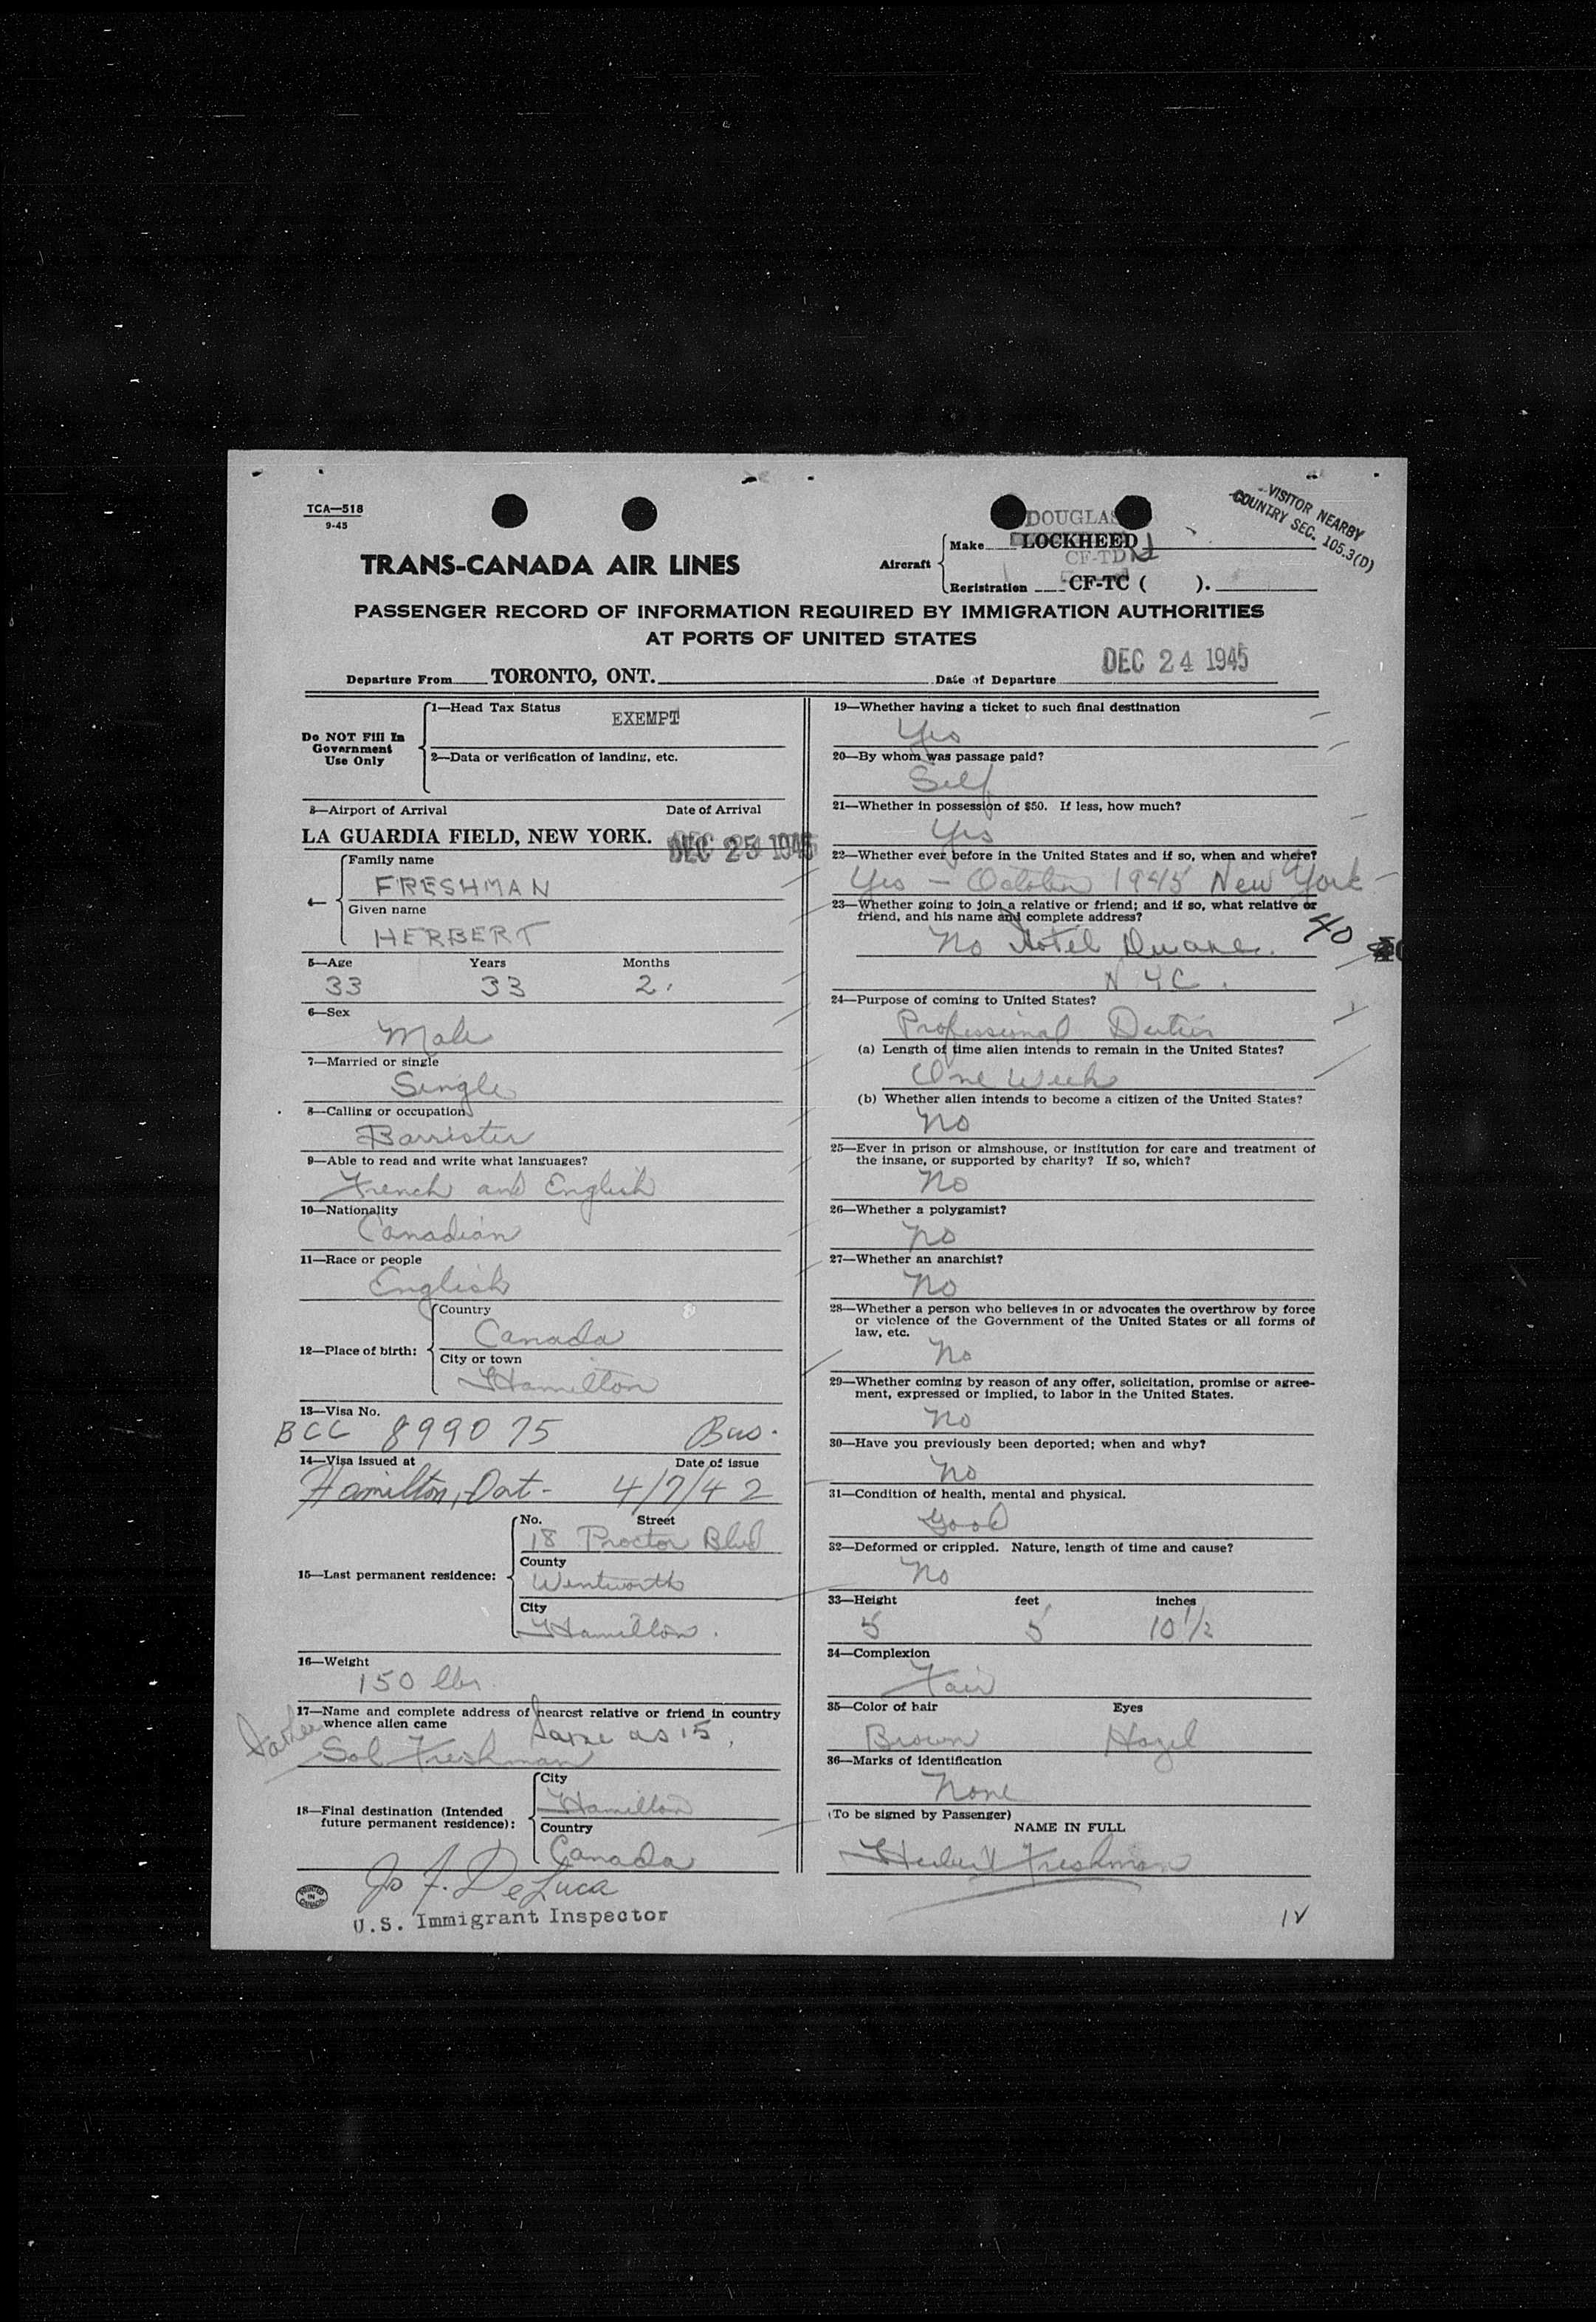 TCA—518
9-45
VISITOR NEARBY
COUNTRY SEC. 105.3(D)
DOUGLAS
Aircraft
Make LOCKHEED
CF-TD
Registration CF-TC ( ).
TRANS-CANADA AIR LINES
PASSENGER RECORD OF INFORMATION REQUIRED BY IMMIGRATION AUTHORITIES
AT PORTS OF UNITED STATES
Departure From TORONTO, ONT. Date of Departure DEC 24 1945
Do NOT Fill In
Government
Use Only
1—Head Tax Status EXEMPT
2—Data or verification of landing, etc.
3—Airport of Arrival Date of Arrival
LA GUARDIA FIELD, NEW YORK. DEC 25 1945
4—
Family name
FRESHMAN
Given name
HERBERT
5—Age Years Months
33 33 2.
6—Sex
Male
7—Married or single
Single
8—Calling or occupation
Barrister
9—Able to read and write what languages?
French and English
10—Nationality
Canadian
11—Race or people
English
12—Place of birth:
Country
Canada
City or town
Hamilton
13—Visa No.
BCC 899075 Bus.
14—Visa issued at Date of issue
Hamilton, Ont- 4/7/42
15—Last permanent residence:
No. Street
18 Proctor Blvd
County
Wentworth
City
Hamilton.
16—Weight
150 lbs.
17—Name and complete address of nearest relative or friend in country
whence alien came Same as 15.
Father
Sol Freshman
18—Final destination (Intended
future permanent residence):
City
Hamilton
Country
Canada
Jo F. DeLuca
U.S. Immigrant Inspector
PRINTED
IN
CANADA
19—Whether having a ticket to such final destination
Yes
20—By whom was passage paid?
Self
21—Whether in possession of $50. If less, how much?
Yes
22—Whether ever before in the United States and if so, when and where?
Yes — October 1945 New York
23—Whether going to join a relative or friend; and if so, what relative or
friend, and his name and complete address?
40
No Hotel Duane.
NYC.
24—Purpose of coming to United States?
Professional Duties
(a) Length of time alien intends to remain in the United States?
One Week
(b) Whether alien intends to become a citizen of the United States?
No
25—Ever in prison or almshouse, or institution for care and treatment of
the insane, or supported by charity? If so, which?
No
26—Whether a polygamist?
No
27—Whether an anarchist?
No
28—Whether a person who believes in or advocates the overthrow by force
or violence of the Government of the United States or all forms of
law, etc.
No
29—Whether coming by reason of any offer, solicitation, promise or agree-
ment, expressed or implied, to labor in the United States.
No
30—Have you previously been deported; when and why?
No
31—Condition of health, mental and physical.
Good
32—Deformed or crippled. Nature, length of time and cause?
No
33—Height feet inches
5 5 10 1/2
34—Complexion
Fair
35—Color of hair Eyes
Brown Hazel
36—Marks of identification
None
(To be signed by Passenger)
NAME IN FULL
Herbert Freshman